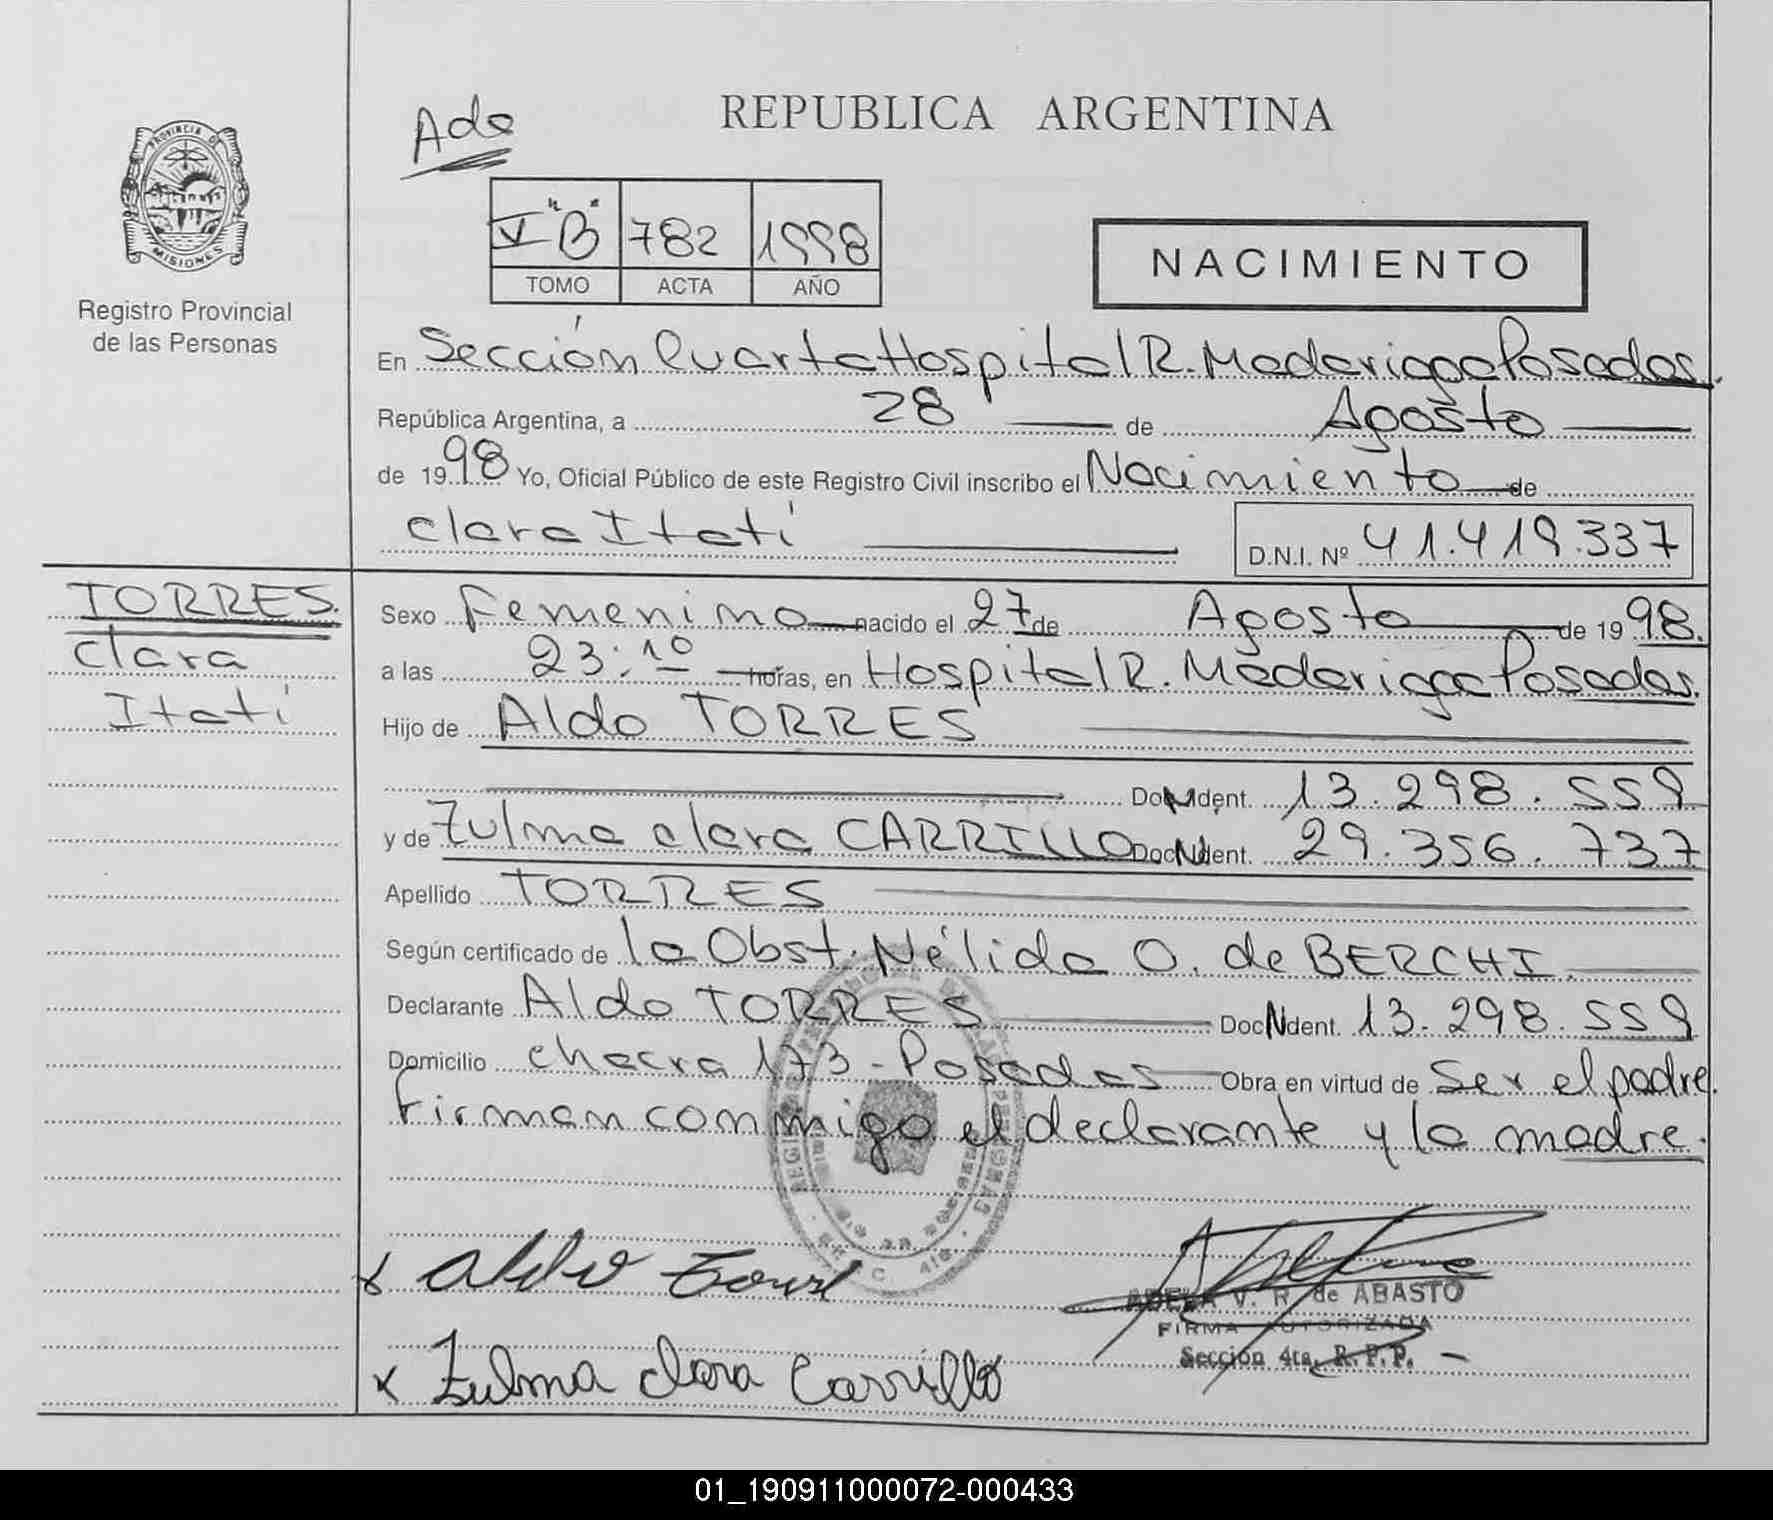 REPUBLICA ARGENTINA
Ado
PROVINCIA DE
MISIONES
Registro Provincial
de las Personas
V "B" 782 1998
TOMO ACTA AÑO
NACIMIENTO
En Sección Cuarta Hospital R. Madariaga Posadas.
República Argentina, a 28 de Agosto
de 1998 Yo, Oficial Público de este Registro Civil inscribo el Nacimiento de
Clara Itatí D.N.I. Nº 41.419.337
TORRES.
Clara
Itatí
Sexo Femenino nacido el 27 de Agosto de 1998.
a las 23:10 horas, en Hospital R. Madariaga Posadas.
Hijo de Aldo TORRES
Doc. Ident. 13.298.559
y de Zulma Clara CARRILLO Doc. Ident. 29.356.737
Apellido TORRES
Según certificado de la Obst. Nélida O. de BERCHI.
Declarante Aldo TORRES Doc. Ident. 13.298.559
Domicilio Chacra 173 - Posadas Obra en virtud de Ser el padre.
Firman conmigo el declarante y la madre.
x Aldo Torres
ADELA V. R. de ABASTO
FIRMA AUTORIZADA
Sección 4ta. R.P.P.
x Zulma Clara Carrillo
01_190911000072-000433